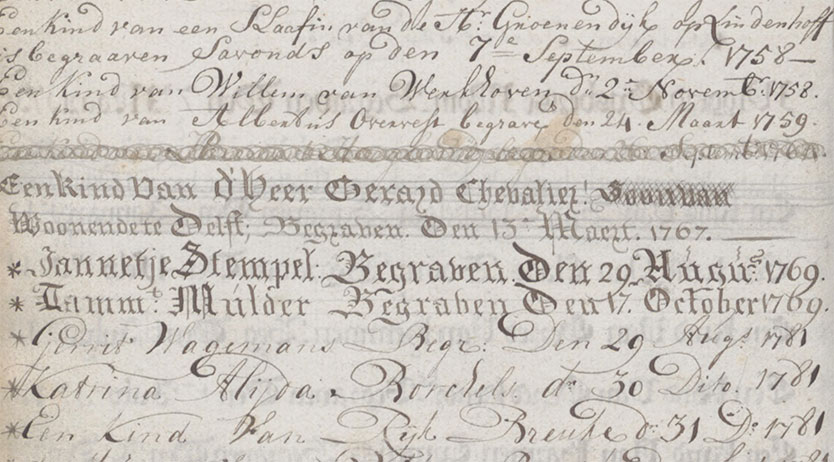 Een kind van een Slaafin van de Hr. Groenendijk op Lindenhoff
is begraaven Savonds op den 7e September. 1758 —
Een Kind van Willem van Werkhoven dn 2n Novembr. 1758.
Een kind van Albertus Overvest begrave den 24. Maart 1759.
Een Kind Van d'Heer Gerard Chevalier!
Woonende te Delft; Begraven. Den 13n Maert. 1767.
* Jannetje Stempel. Begraven Den 29 Augús. 1769.
* Tammt. Múlder Begraven Den 17. October 1769.
* Gerrit Wagemans Begr: Den 29 Augs 1781
* Katrina Alijda Borckels dn 30 Dito. 1781
* Een Kind Van Rijk Breuke dn 31 Do 1781